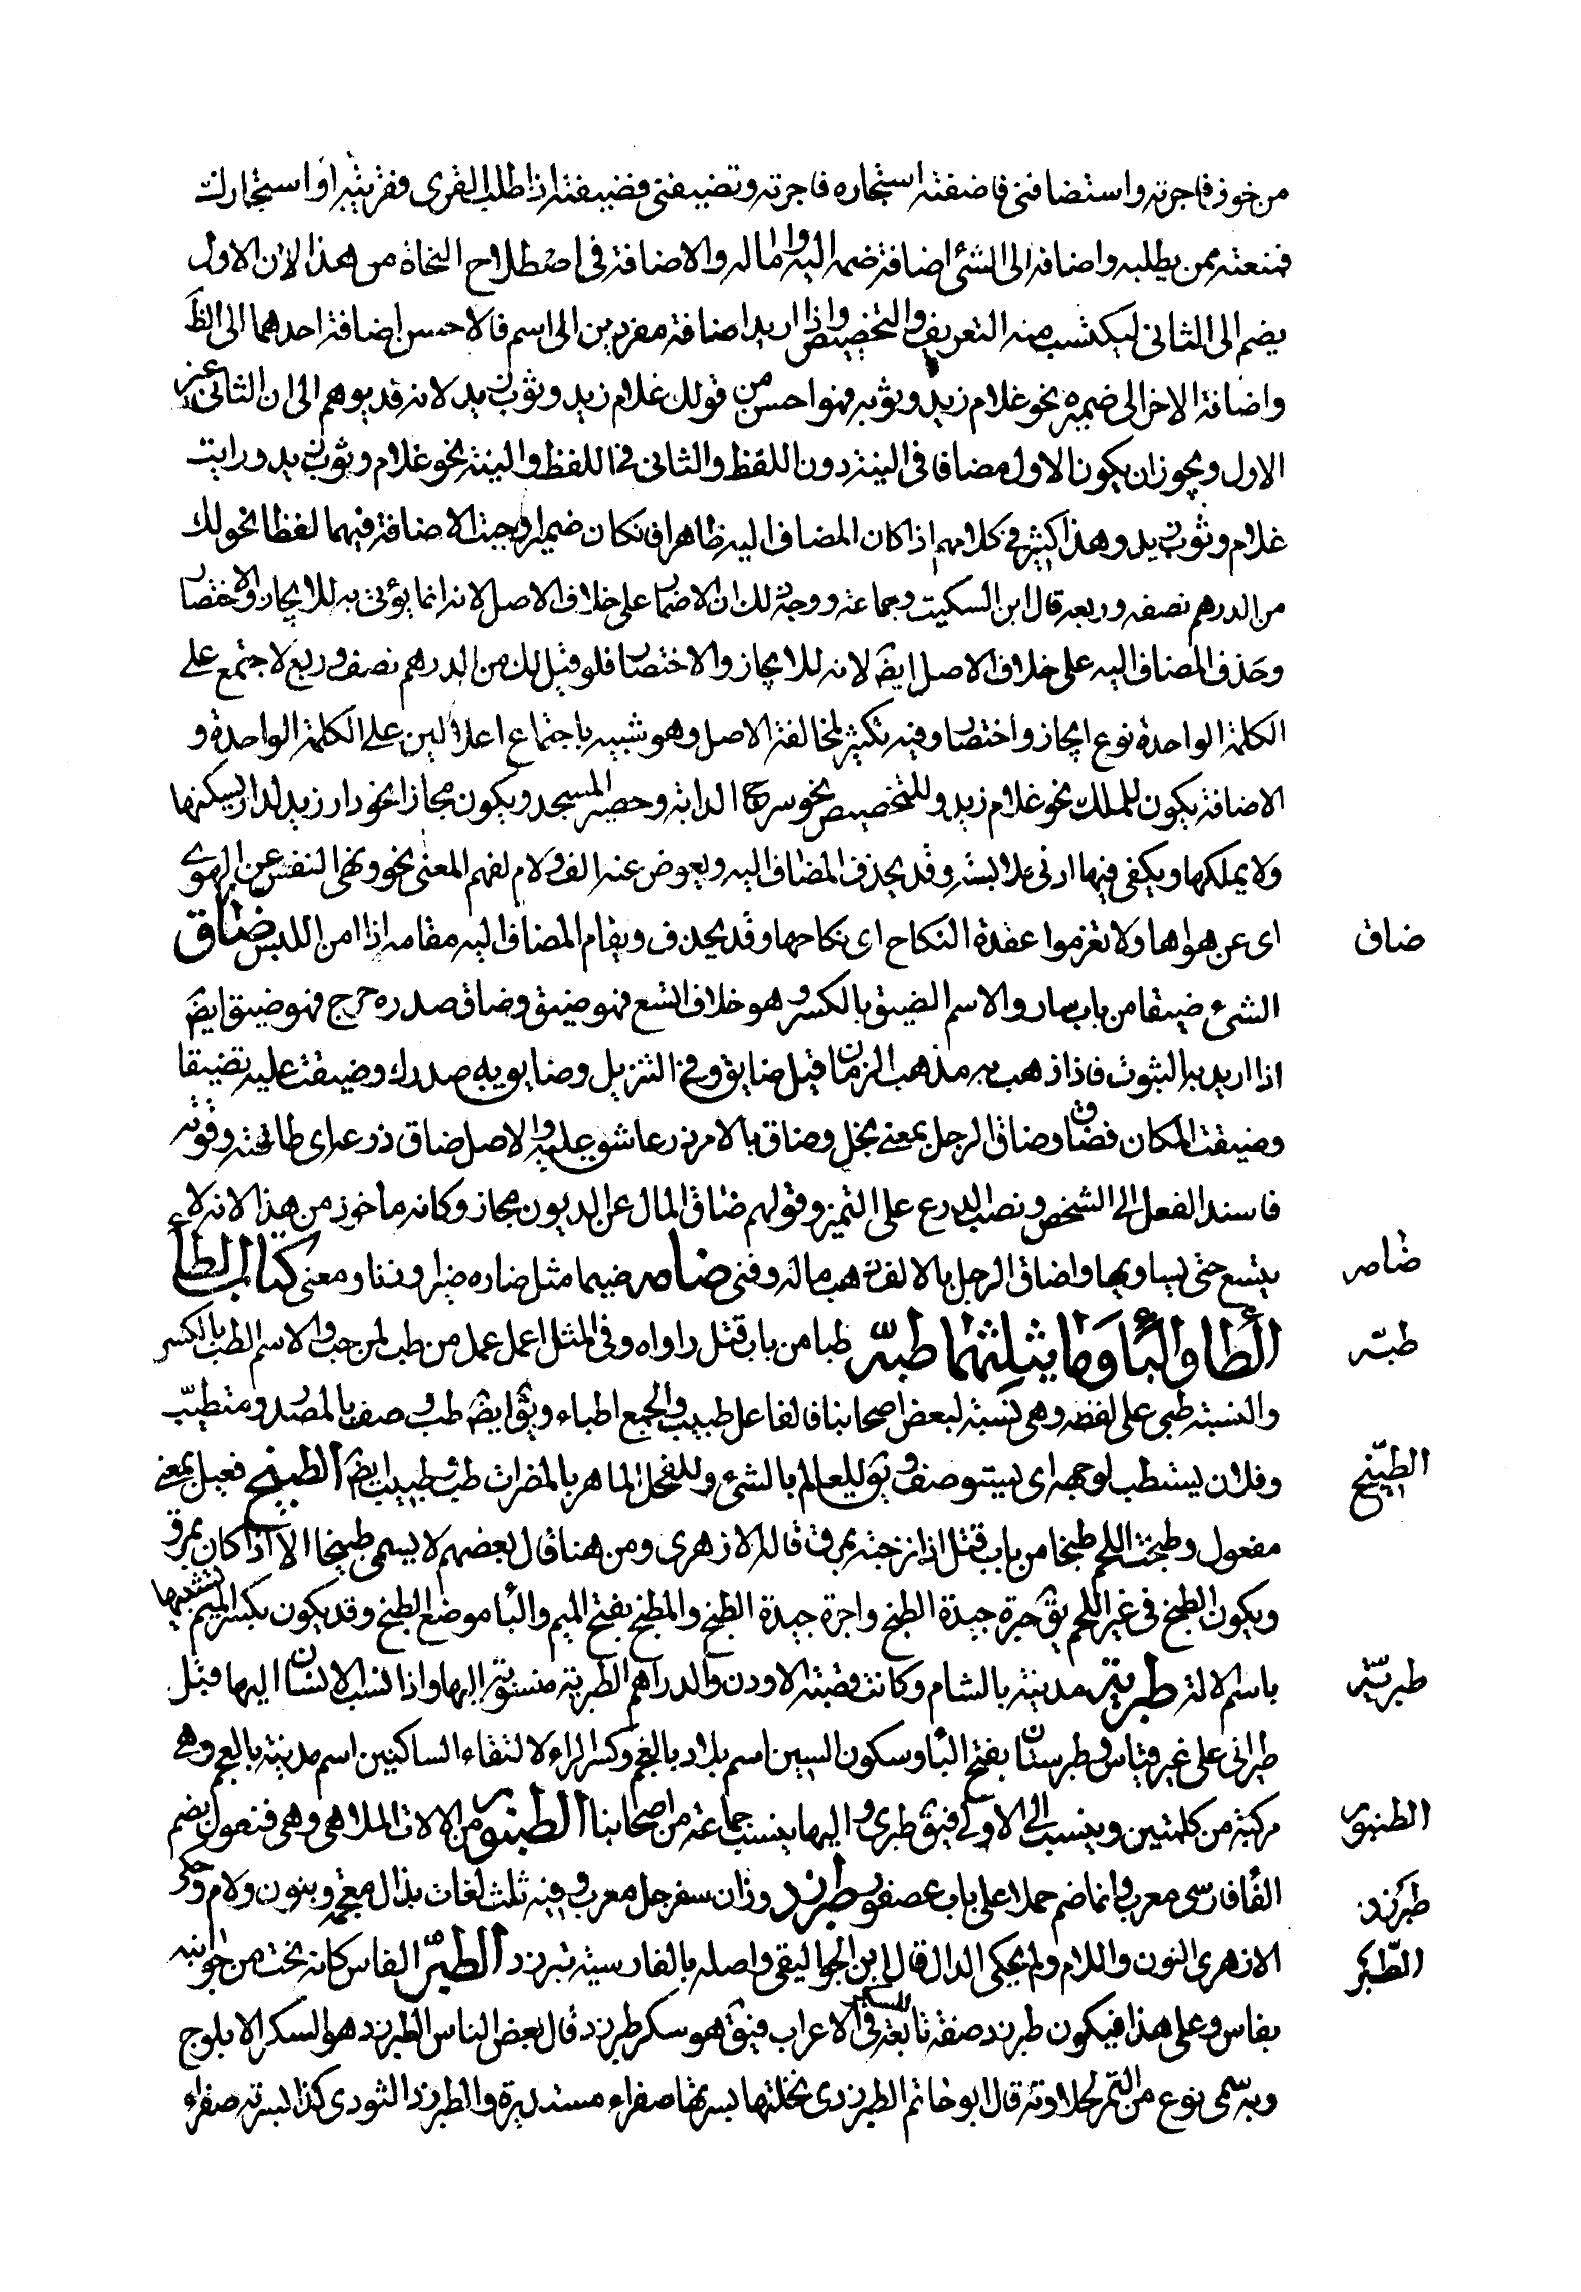 من خوف فاجرته واستضافنى فاضفته استجاره فاجرته وتضيفنى فضيفته اذا طلب القرى فقريته او استجارك
فمنعته ممن يطلبه واضافه الى الشئ اضافة ضمه اليه واماله والاضافة فى اصطلاح النحاة من هذا لان الاول
يضم الى الثانى ليكتسب منه التعريف والتخصيص واذا اريد اضافة مفردين الى اسم فالاحسن اضافة احدهما الى الظ
واضافة الاخر الى ضميره نحو غلام زيد وثوبه فهو احسن من قولك غلام زيد وثوب زيد لانه قد يوهم الى ان الثانى غير
الاول ويجوز ان يكون الاول مضافا فى النية دون اللفظ والثانى فى اللفظ والنية نحو غلام وثوب زيد ورايت
غلام وثوب زيد وهذا كثير فى كلامهم اذا كان المضاف اليه ظاهرا فان كان ضميرا وجبت الاضافة فيهما لفظا نحو لك
من الدرهم نصفه وربعه قال ابن السكيت وجماعة ووجه ذلك ان الاضمار على خلاف الاصل لانه انما يؤتى به للايجاز والاختصار
وحذف المضاف اليه على خلاف الاصل ايضا لانه للايجاز والاختصار فلو قيل لك من الدرهم نصف وربع لاجتمع على
الكلمة الواحدة نوع ايجاز واختصار وفيه تكثير لمخالفة الاصل وهو شبيه باجتماع اعلالين على الكلمة الواحدة و
الاضافة يكون للملك نحو غلام زيد وللتخصيص نحو سرج الدابة وحصير المسجد ويكون مجازا نحو دار زيد لدار يسكنها
ولا يملكها ويكفى فيها ادنى ملابسة وقد يحذف المضاف اليه ويعوض عنه الف ولام لفهم المعنى نحو ونهى النفس عن الهوى
اى عن هواها ولا تعزموا عقدة النكاح اى نكاحها وقد يحذف ويقام المضاف اليه مقامه اذا امن اللبس ضاق
ضاق
الشئ ضيقا من باب سار والاسم الضيق بالكسر وهو خلاف اتسع فهو ضيق وضاق صدره حرج فهو ضيق ايض
اذا اريد به الثبوت فاذا ذهب به مذهب الزمان قيل ضايق وفى التنزيل وضايق به صدرك وضيقت عليه تضييقا
وضيقت المكان فضاق وضاق الرجل بمعنى بخل وضاق بالامر ذرعا شق عليه والاصل ضاق ذرعه اى طاقته وقوته
فاسند الفعل الى الشخص ونصب الذرع على التميز وقولهم ضاق المال عن الديون مجاز وكانه ماخوذ من هذا لانه لا
يتسع حتى يساويها واضاق الرجل بالالف ذهب ماله وفنى ضامه ضيما مثل ضاره ضيرا وزنا ومعنى كتاب الطاء
ضامه
الطا والبا وما يثلثهما طبّه طبا من باب قتل داواه وفى المثل اعمل عمل من طب لمن حب والاسم الطب بالكسر
طبّه
والنسبة طبى على لفظه وهى نسبة لبعض اصحابنا فالفاعل طبيب والجمع اطباء ويق ايض طب وصف بالمصدر ومتطبّب
وفلان يستطب لوجعه اى يستوصف ويق للعالم بالشئ وللفحل الماهر بالضراب طب وطبيب ايض الطبيخ فعيل بمعنى
الطبّيخ
مفعول وطبخت اللحم طبخا من باب قتل اذا انضجته بمرق قاله الازهرى ومن هنا قال بعضهم لا يسمى طبيخا الا اذا كان بمرق
ويكون الطبخ فى غير اللحم يق خبزة جيدة الطبخ واجرة جيدة الطبخ والمطبخ بفتح الميم والبا موضع الطبخ وقد يكون بكسر الميم تشبيها
باسم الالة طبرية مدينة بالشام وكانت قصبة الاردن والدراهم الطبرية منسوبة اليها واذا نسب الانسان اليها قيل
طبريّه
طبرانى على غير قياس وطبرستان بفتح البا وسكون السين اسم بلاد بالعجم وكسر الراء لالتقاء الساكنين اسم مدينة بالعجم وهى
مركبة من كلمتين وينسب الى الاولى فيق طبرى واليها ينسب جماعة من اصحابنا الطنبور من الات الملاهى وهى فنعول بضم
الطنبور
الفا فارسى معرب وانما ضم حملا على باب عصفور طبرزد وزان سفرجل معرب وفيه ثلث لغات بذال معجمة وبنون ولام وحكى
طبرزد
الازهرى النون واللام ولم يحكى الدال قال ابن الجواليقى واصله بالفارسية تبرزد الطبر الفاس كانه نحت من جوانبه
الطّبر
بفاس وعلى هذا فيكون طبرزد صفة تابعة للسكر فى الاعراب فيق هو سكر طبرزد قال بعض الناس الطبرزد هو السكر الابلوج
وبه سمى نوع من التمر لحلاوته قال ابو حاتم الطبرزدى نخلتها بسرتها صفراء مستديرة والطبرزد الثورى كذا لبسرته صفراء